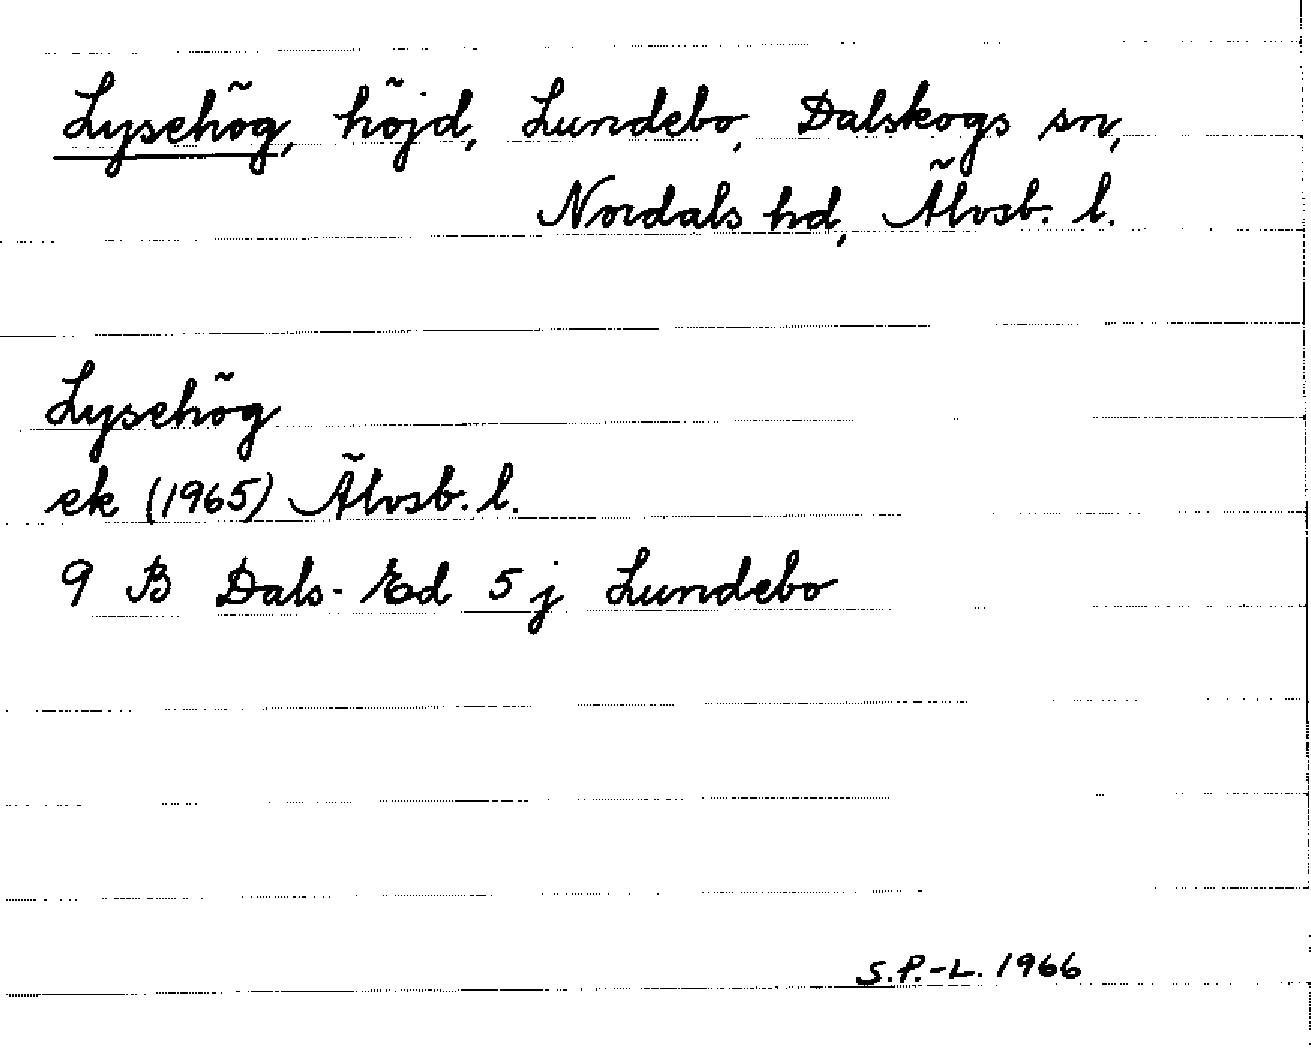 Lysehög, höjd, Lundebo, Dalskogs sn,
Nordals hd, Älvsb. l.
Lysehög
ek (1965) Älvsb. l.
9 B Dals-Ed 5 j Lundebo
S.P.-L. 1966